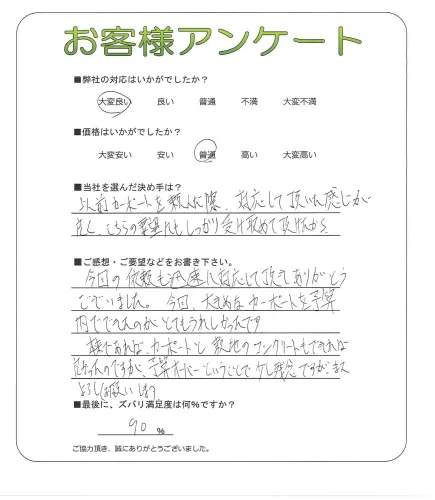 お客様アンケート
■弊社の対応はいかがでしたか？
大変良い 良い 普通 不満 大変不満
■価格はいかがでしたか？
大変安い 安い 普通 高い 大変高い
■当社を選んだ決め手は？
以前カーポートを頼んだ際、対応して頂いた感じが
良く、こちらの要望にもしっかり受け止めて頂けたから
■ご感想・ご要望などをお書き下さい。
今回の依頼も迅速に対応して頂きありがとう
ございました。今回、大きめなカーポートを予算
内でできたのがとてもうれしかったです
であれば、カーポートと敷地のコンクリートもできれば
よかったのですが、予算オーバーということで少し残念ですが、また
よろしくお願いします
■最後に、ズバリ満足度は何％ですか？
90 ％
ご協力頂き、誠にありがとうございました。